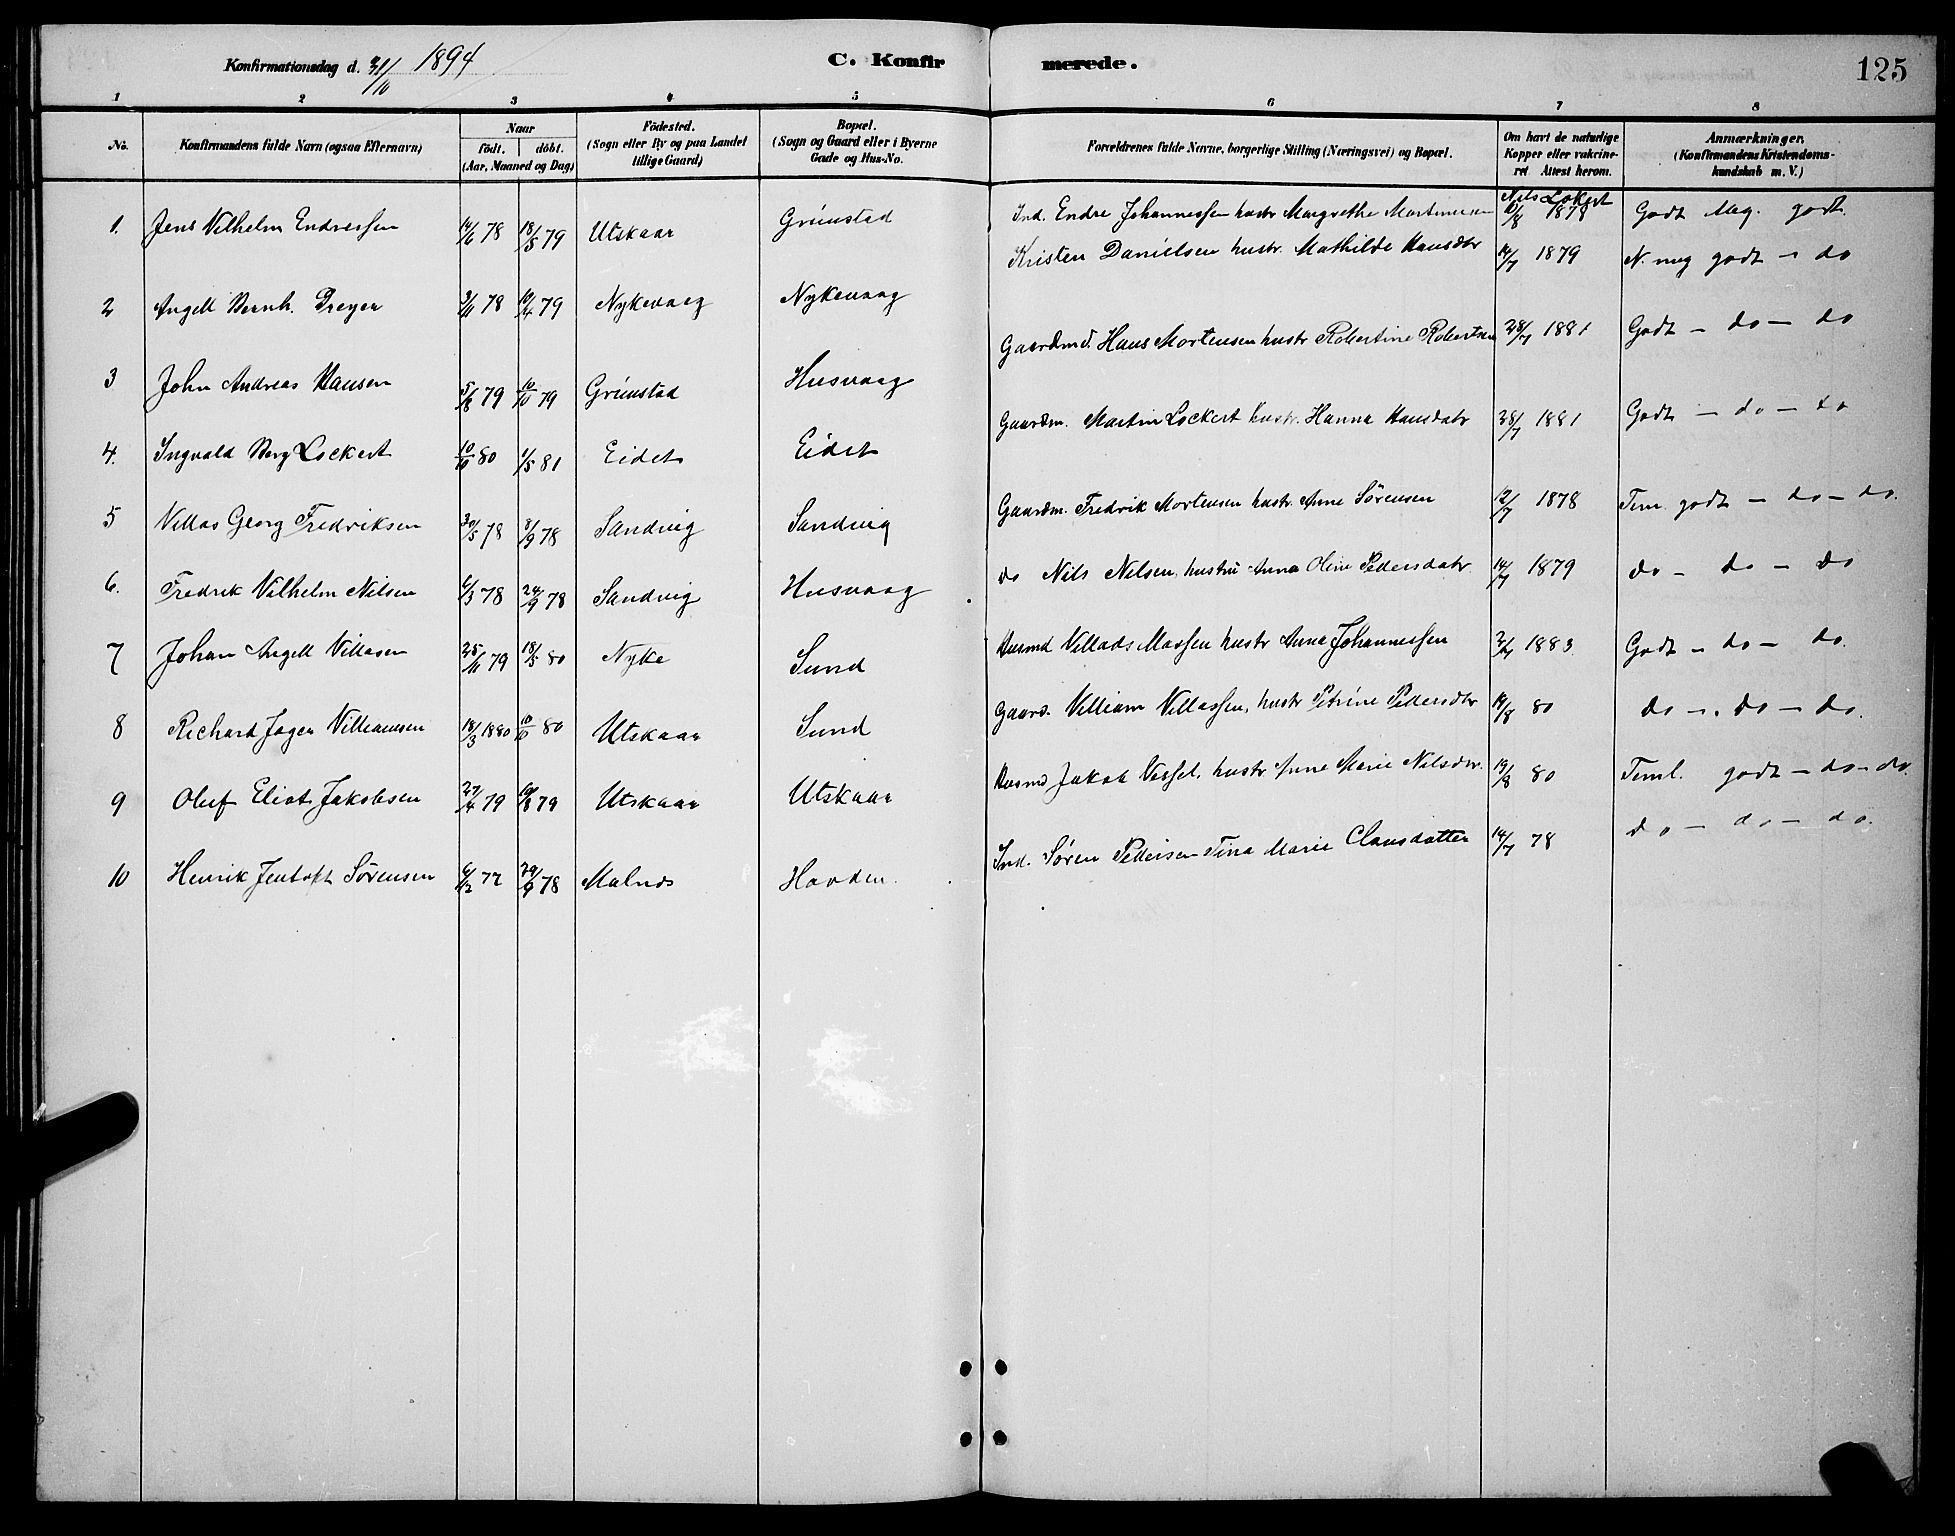 Konfirmationsdag d. 31/10 1894
C. Konfirmerede.
125
1 2 3 4 5 6 7 8
No. Konfirmandens fulde Navn (ogsaa Efternavn) Naar födt. döbt. (Aar, Maaned og Dag) Födested. (Sogn eller By og paa Landet tillige Gaard) Bopæl. (Sogn og Gaard eller i Byerne Gade og Hus-No. Forældrenes fulde Navne, borgerlige Stilling (Næringsvei) og Bopæl. Om havt de naturlige Kopper eller vakcineret Attest herom. Anmærkninger. (Konfirmandens Kristendomskundskab m. V.)
1. Jens Vilhelm Endressen 14/6 78 18/5 79 Utskaar Grünstad Ind. Endre Johannessen hustr Margrethe Nils Lokert 10/8 1878 Godt Meg. godt.
2 Angell Bernh. Dreyer 3/11 78 10/4 79 Nykevaag Nykevaag Kristen Danielsen hustr. Mathilde Hansdtr 14/7 1879 N. meg godt - do
3 John Andreas Hansen 5/8 79 10/10 79 Grünstad Husvaag Gaardmd. Hans Mortensen hustr Robertine Robertsen 28/7 1881 Godt - do - do
4. Ingvald Berg Lockert 10/10 80 1/5 81 Eidet Eidet Gaardm. Martin Lockert hustr. Hanna Hansdatr 28/7 1881 Godt - do - do
5 Villas Georg Fredriksen 30/5 78 8/9 78 Sandvig Sandvig Gaardm. Fredrik Mortensen hustr. Anne Sörensen 12/7 1878 Tem. godt - do - do.
6. Fredrik Vilhelm Nilsen 6/3 78 29/9 78 Sandvig Husvaag do Nils Nilsen, hustru Anna Oline Pedersdatr 14/7 1879 do - do - do
7 Johan Angell Villasen 25/11 79 18/5 80 Nyke Sund Husmd Villads Massen hustr Anna Johannessen 2/7 1883. Godt - do - do.
8 Richard Jager Villiamsen 18/3 1880 10/10 80 Utskaar Sund Gaard. Villiam Villassen, hustr Petrine Pedersdtr 19/8 80 do -. do - do.
9 Oluf Eliot Jakobsen 27/4 79 10/8 79 Utskaar Utskaar Husmd Jakob Vessel, hustr Anne Marie Nilsdtr. 19/8 80 Teml. godt - do - do.
10 Henrik Jentoft Sörensen 6/12 77 29/9 78 Malnes Hovden. Ind. Sören Pedersen Tina Marie Clausdatter 14/7 78 do - do - do.